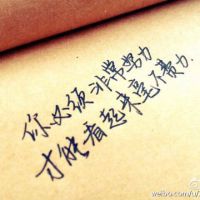 你必须非常努力
才能看起来毫不费力.
weibo.com/u/